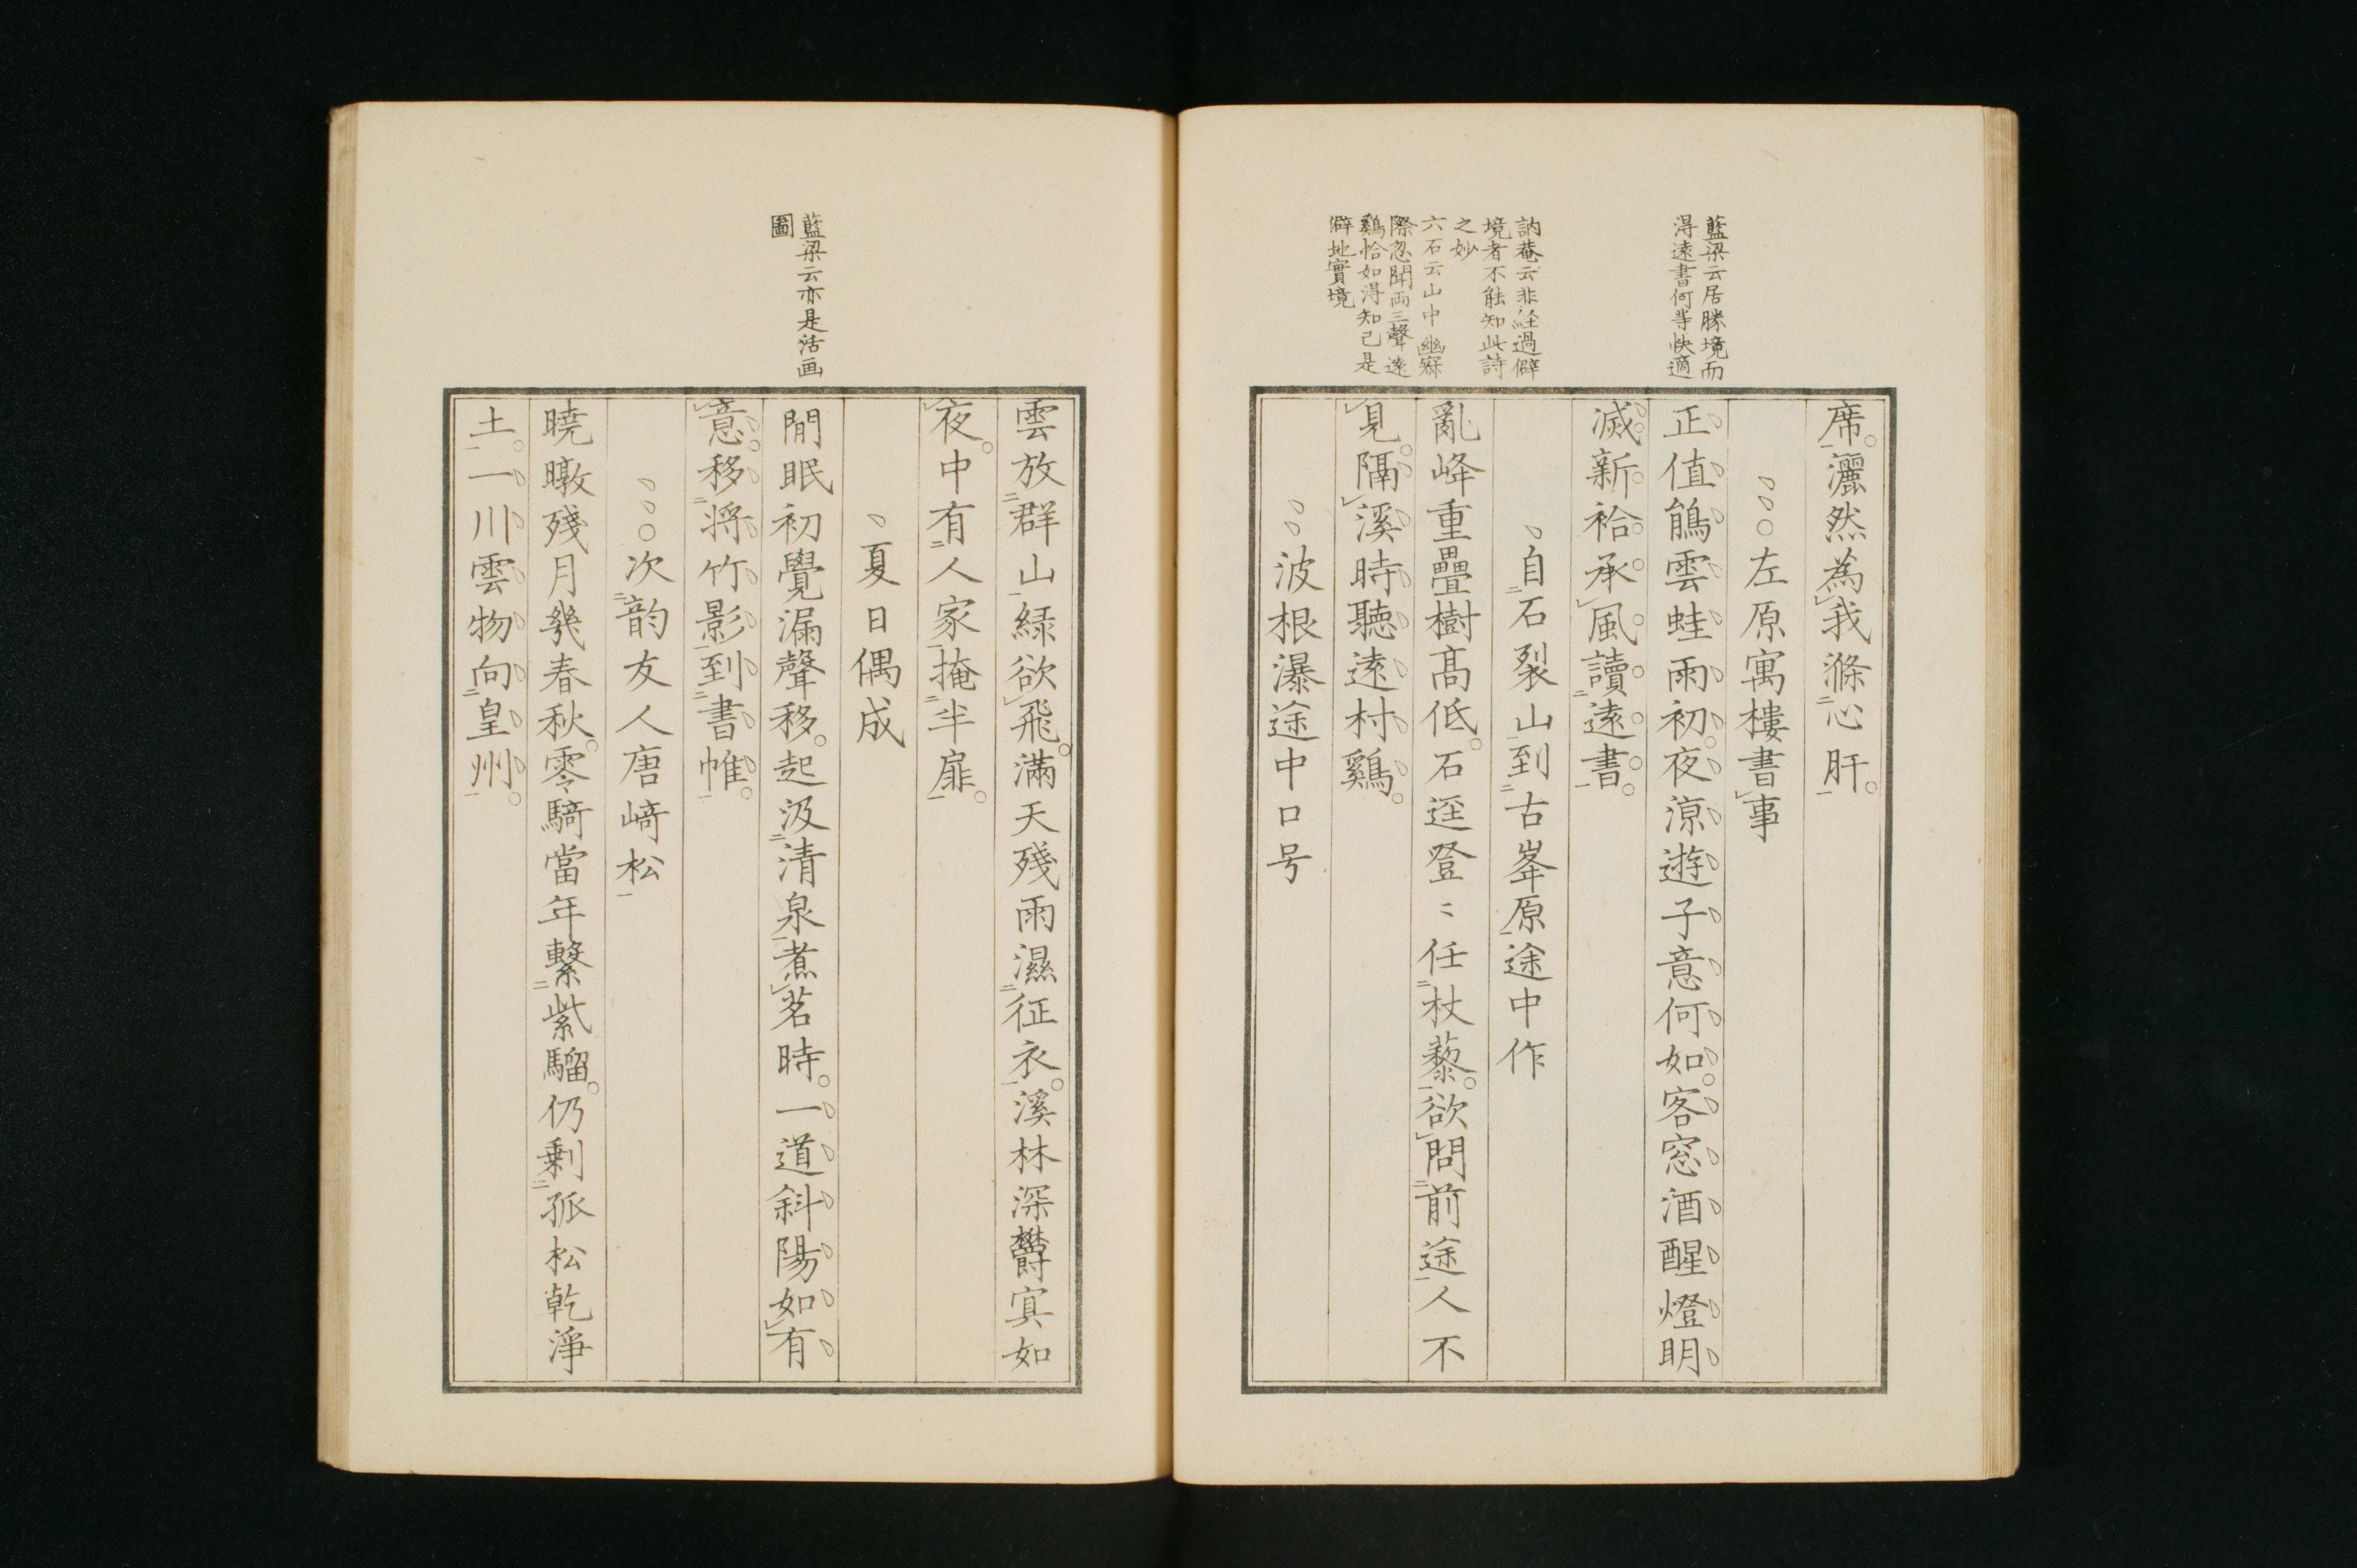 藍梁云居勝境而
得遠書何等快適
訥菴云非経過僻
境者不能知此詩
之妙
六石云山中幽寂
際忽聞両三聲遠
鷄恰如得知己是
僻地實境
席。灑然為我滌心肝。
左原寓樓書事
正值鵃雲蛙雨初。夜涼遊子意何如。客窓酒醒燈明
滅。新袷承風讀遠書。
自石裂山到古峯原途中作
亂峰重疊樹髙低。石逕登〻任杖藜。欲問前途人不
見。隔溪時聽遠村鷄。
波根瀑途中口号
藍梁云亦是活画
圖
雲放群山緑欲飛。滿天殘雨濕征衣。溪林深欝寘如
夜。中有人家掩半扉。
夏日偶成
閒眠初覺漏聲移。起汲清泉煮茗時。一道斜陽如有
意。移将竹影到書帷。
次韵友人唐﨑松
曉暾殘月幾春秋。零騎當年繋紫騮。仍剩孤松乾淨
土。一川雲物向皇州。